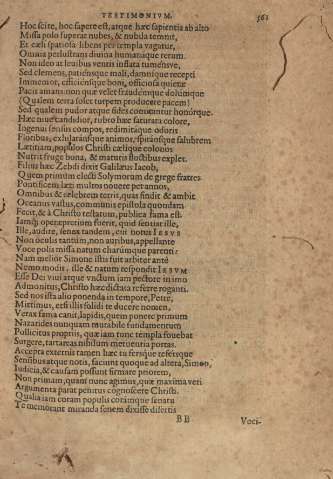 TESTIMONIVM. 361
Hoc scite, hoc sapere est, atque hæc sapientia ab alto
Missa polo superat nubes, & nubila temnit,
Et cæli spatiosa libens per templa vagatur,
Omnia perlustrans diuina humanaque rerum.
Non ideo at leuibus ventis inflata tumensve,
Sed clemens, patiensque mali, damnique recepti
Immemor, efficiensque boni, officiosa quietæ
Pacis amans non quæ velet fraudemque dolumque
(Qualem terra solet turpem producere pacem)
Sed qualem pudor atque fides comitentur honórque.
Hæc niue candidior, rubro hæc saturata colore,
Ingenui sensus compos, redimitáque odoris
Floribus, exhilaránsque animos, spiránsque salubrem
Lætitiam, populos Christi cælique colonos
Nutrit fruge bona, & maturis fructibus explet.
Filius hæc Zebdi dixit Galilæus Iacob,
Quem primum electi Solymorum de grege fratres
Pontificem læti multos nouere per annos,
Omnibus & celebrem terris, quas findit & ambit
Oceanus vastus, communis epistola quondam
Fecit, & à Christo testatum, publica fama est.
Iamque operæpretium fuerit, quid senserit ille,
Ille, audire, senex tandem, cui notus IESVS
Non oculis tantùm, non auribus, appellante
Voce polis missa natum charumque parenti:
Nam melior Simone istis fuit arbiter antè
Nemo modis, ille & natum respondit IESVM
Esse Dei viui atque vnctum iam pectore in imo
Admonitus, Christo hæc dictata referre roganti.
Sed nos ista alio ponenda in tempore, Petre,
Mittimus, etsi illis solidi te ducere nomen,
Veræ fama canit, lapidis, quem ponere primum
Nazarides nunquam mutabile fundamentum
Pollicitus propriis, quæ iam tunc templa fouebat
Surgere, tartareas nihilum metuentia portas.
Accepta externis tamen hæc tu sersque refersque
Sensibus atque notis, faciunt quoque ad altera, Simon,
Iudicia, & causam possunt firmare priorem,
Non primam, quam nunc agimus, quæ maxima veri
Argumenta parat penitus cognoscere Christi.
Qualia iam coram populis corámque senatu
Te memorant miranda senem dixisse disertis
BB Voci-